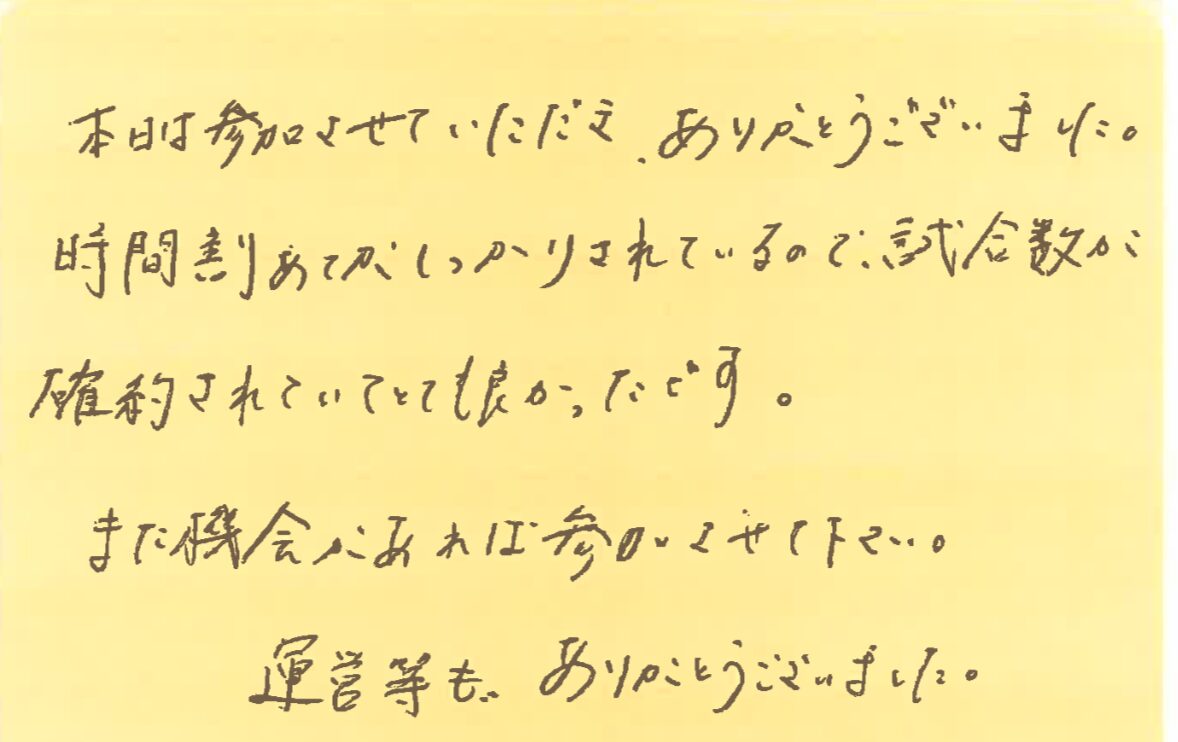 本日は参加させていただき、ありがとうございました。
時間割あてがしっかりされているので、試合数が
確約されていてとても良かったです。
また機会があれば参加させて下さい。
運営等も、ありがとうございました。